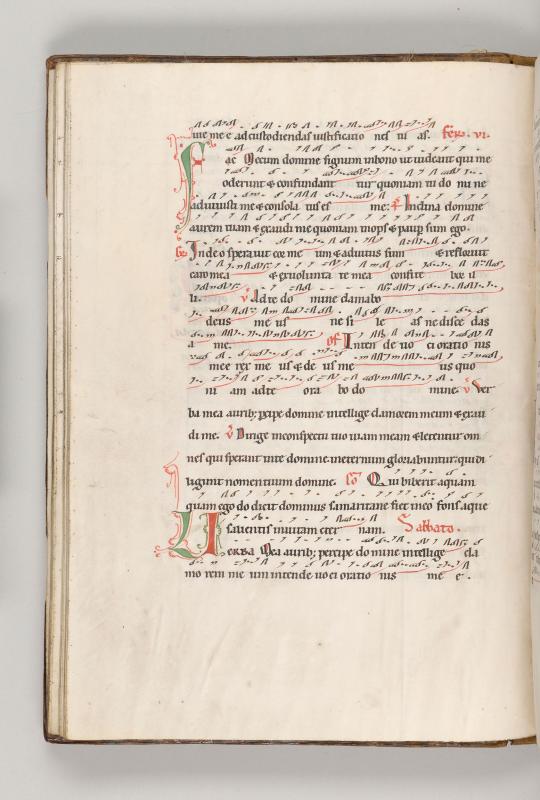 tue me e ad custodiendas iustificatio nes tu as. fer vi.
Fac Mecum domine signum in bono ut uideant qui me
oderunt & confundant tur quoniam tu do mi ne
adiuuisti me & consola tus es me: Inclina domine
aurem tuam & exaudi me quoniam inops & paup sum ego.
In deo sperauit cor me um & adiutus sum & refloruit
caro mea & ex uolunta te mea confite bor il
li. Ad te do mine clamabo
deus me us ne si le as ne disce das
a me. Of Inten de uo ci oratio nis
mee rex me us & de us me us quo
ni am ad te ora bo do mine. Ver
ba mea aurib; pcipe domine intellige clamorem meum & exau
di me. Dirige in conspectu tuo uiam meam & letentur om
nes qui sperant in te domine in eternum gloriabuntur: qui di
ligunt nomen tuum domine. Co Qui biberit aquam
quam ego do dicit dominus samaritane fiet in eo fons aque
salientis in uitam eter nam. Sabbato.
Verba Mea aurib; percipe do mine intellige cla
mo rem me um intende uoci oratio nis me e.